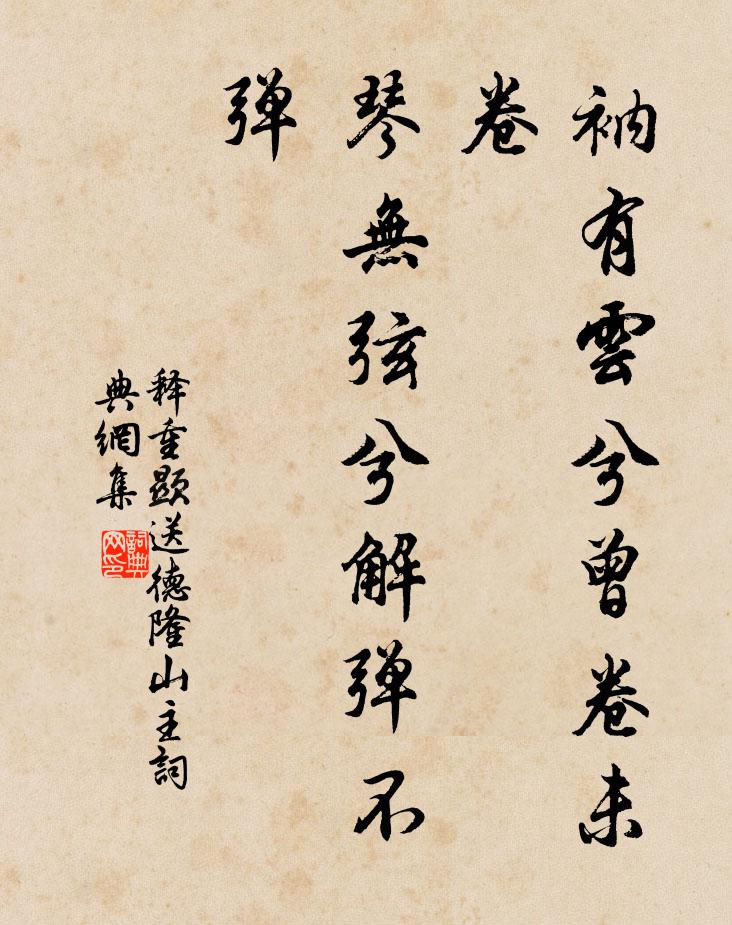 衲有雲兮曾卷未
卷
琴無弦兮解弹不
弹
释重顯送德隆山主詞
典網集
詞典
网印